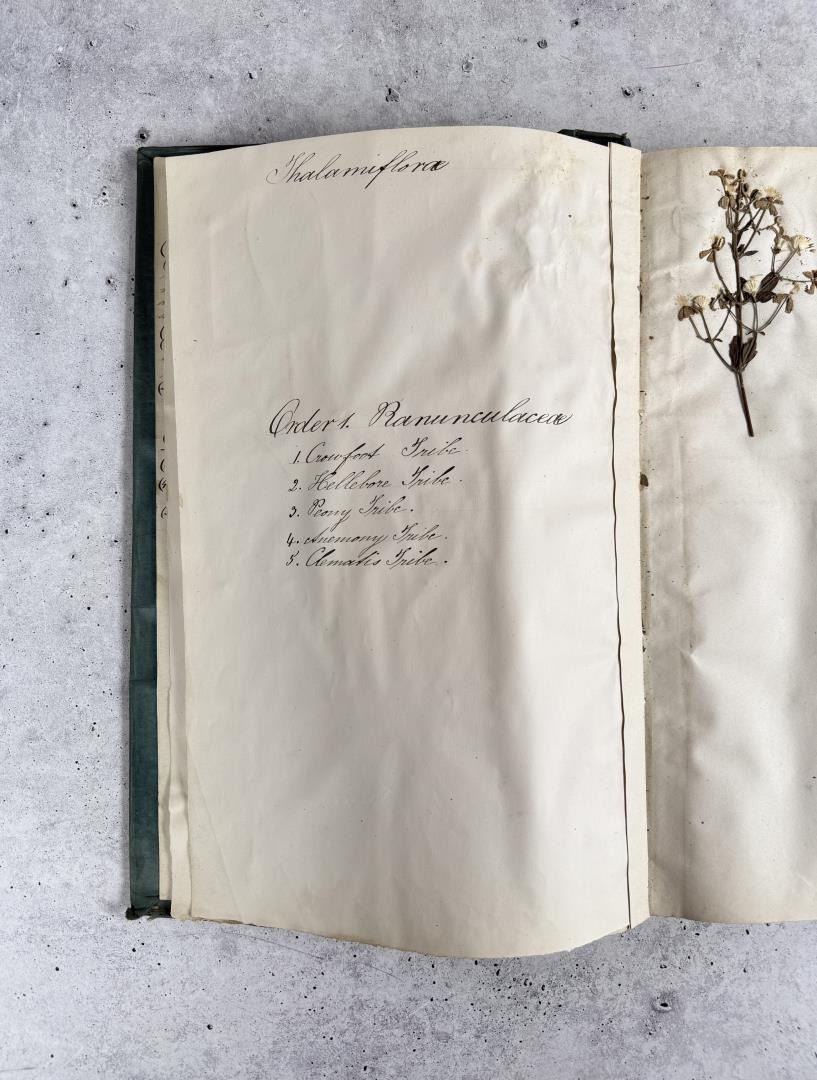 Thalamifloræ
Order 1. Ranunculaceæ
1. Crowfoot Tribe.
2. Hellebore Tribe.
3. Peony Tribe.
4. Anemony Tribe.
5. Clematis Tribe.